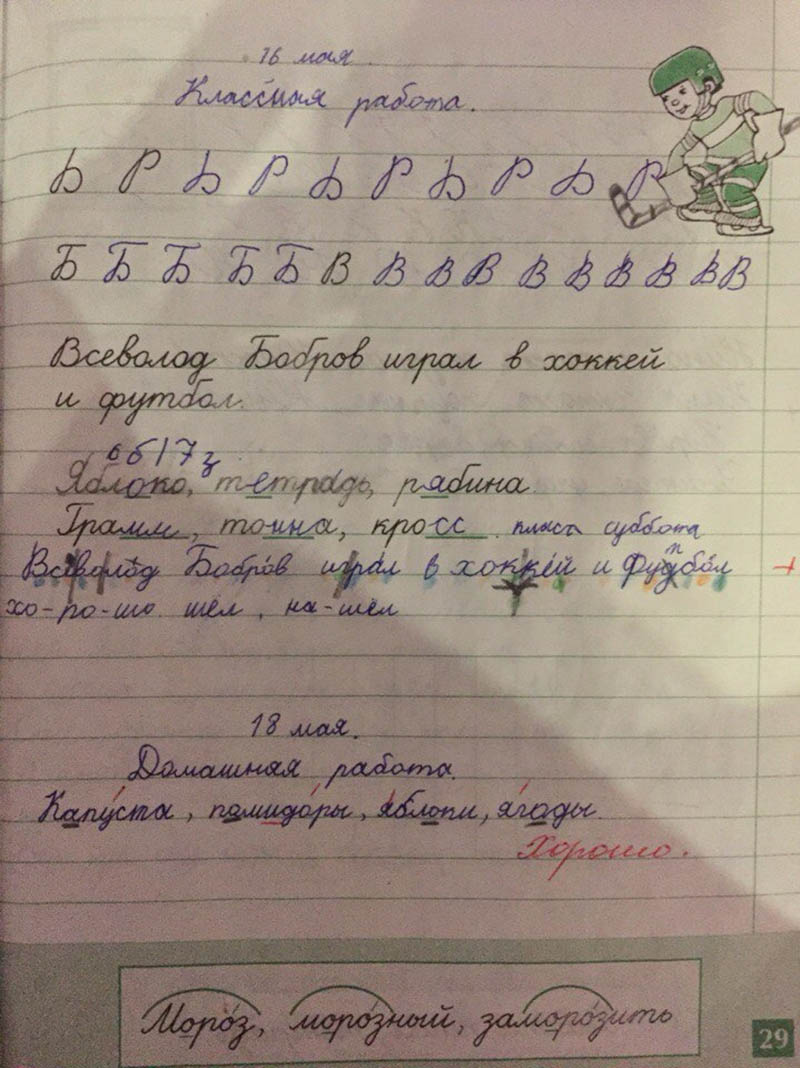 16 мая.
Классная работа.
Ь Р Ь Р Ь Р Ь Р Ь Р
Б Б Б Б Б В В В В В В В В В В
Всеволод Бобров играл в хоккей
и футбол.
Яблоко, тетрадь, рябина.
Грамм, тонна, кросс. класс суббота
Всеволод Бобров играл в хоккей и футбол
хо-ро-шо шёл, на-шёл
18 мая.
Домашняя работа.
Капуста, помидоры, яблоки, ягоды.
Хорошо.
Мороз, морозный, заморозить
29